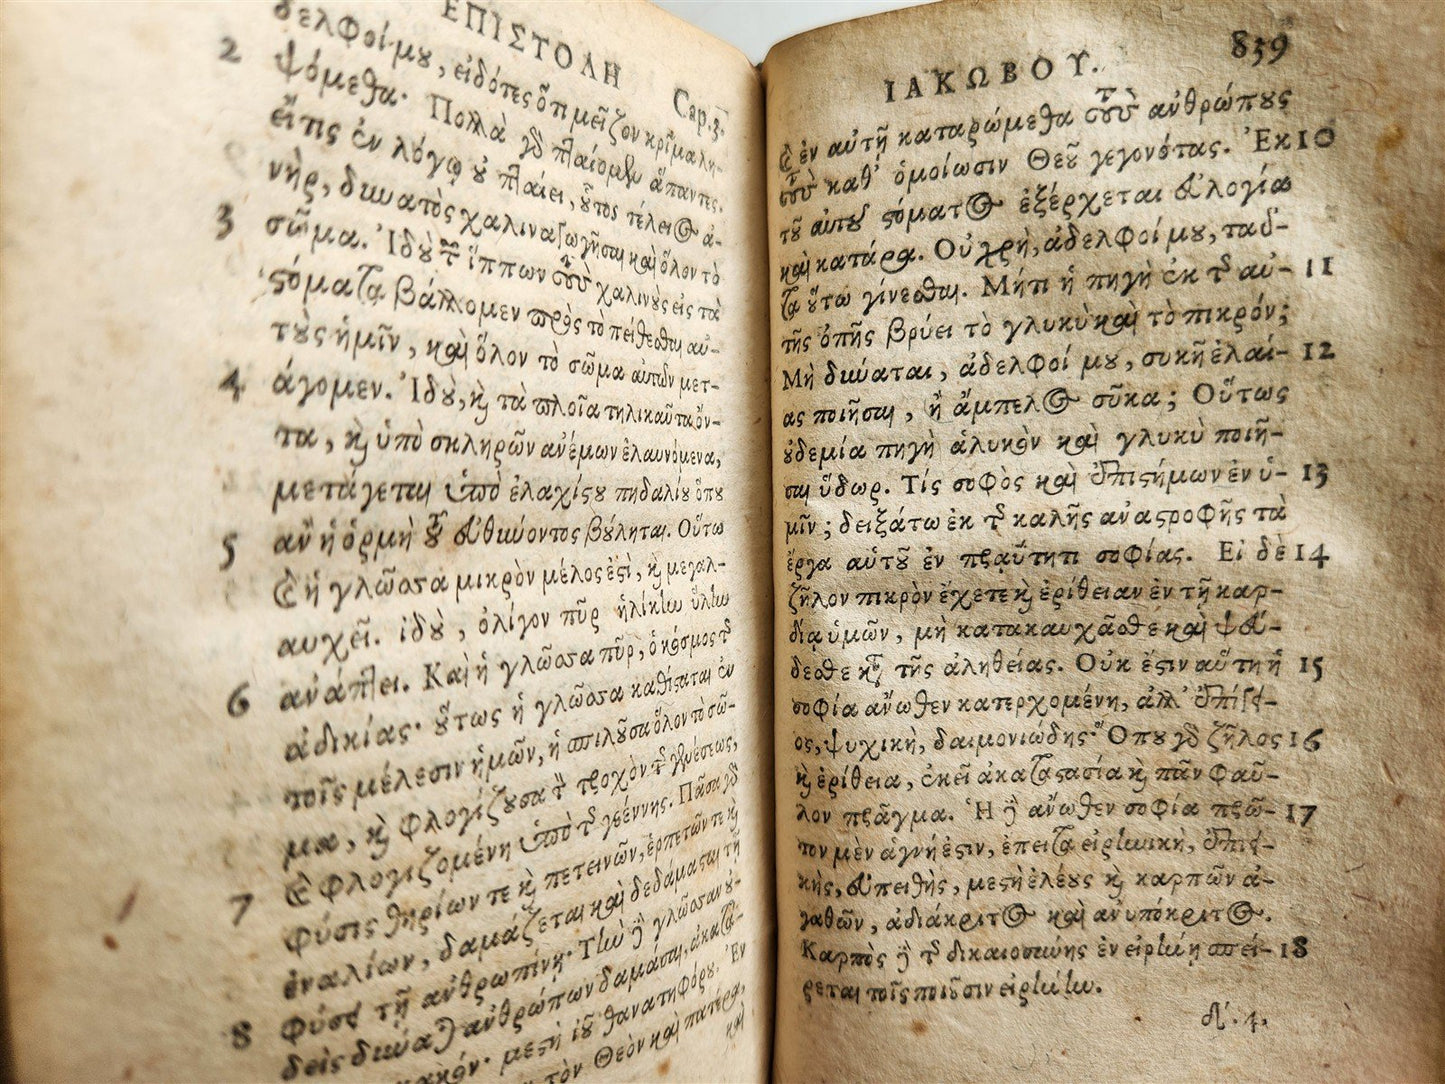 ΕΠΙΣΤΟΛΗ
Cap.3.
δελφοί μου, εἰδότες ὅτι μεῖζον κρῖμα λη-
2 ψόμεθα· Πολλὰ γὰρ πταίομεν ἅπαντες.
εἴ τις ἐν λόγῳ οὐ πταίει, οὗτος τέλειος ἀ-
νὴρ, δυνατὸς χαλιναγωγῆσαι καὶ ὅλον τὸ
3 σῶμα. Ἰδοὺ τῶν ἵππων τοὺς χαλινοὺς εἰς τὰ
στόματα βάλλομεν πρὸς τὸ πείθεσθαι αὐ-
τοὺς ἡμῖν, καὶ ὅλον τὸ σῶμα αὐτῶν μετ-
4 άγομεν. Ἰδοὺ, καὶ τὰ πλοῖα τηλικαῦτα ὄν-
τα, καὶ ὑπὸ σκληρῶν ἀνέμων ἐλαυνόμενα,
μετάγεται ὑπὸ ἐλαχίστου πηδαλίου ὅπου
ἂν ἡ ὁρμὴ τοῦ εὐθύνοντος βούληται. Οὕτω
5 καὶ ἡ γλῶσσα μικρὸν μέλος ἐστὶ, καὶ μεγαλ-
αυχεῖ. ἰδοὺ, ὀλίγον πῦρ ἡλίκην ὕλην
ἀνάπτει. Καὶ ἡ γλῶσσα πῦρ, ὁ κόσμος τῆς
6 ἀδικίας· οὕτως ἡ γλῶσσα καθίσταται ἐν
τοῖς μέλεσιν ἡμῶν, ἡ σπιλοῦσα ὅλον τὸ σῶ-
μα, καὶ φλογίζουσα τὸν τροχὸν τῆς γενέσεως,
καὶ φλογιζομένη ὑπὸ τῆς γεέννης. Πᾶσα γὰρ
7 φύσις θηρίων τε καὶ πετεινῶν, ἑρπετῶν τε καὶ
ἐναλίων, δαμάζεται καὶ δεδάμασται τῇ
φύσει τῇ ἀνθρωπίνῃ· Τὴν δὲ γλῶσσαν οὐ-
8 δεὶς δύναται ἀνθρώπων δαμάσαι, ἀκατά-
κακόν· μεστὴ ἰοῦ θανατηφόρου. Ἐν
τὸν Θεὸν καὶ πατέρα,
καὶ
ΙΑΚΩΒΟΥ. 859
καὶ ἐν αὐτῇ καταρώμεθα τοὺς ἀνθρώπους
τοὺς καθ' ὁμοίωσιν Θεοῦ γεγονότας. Ἐκ 10
τοῦ αὐτοῦ στόματος ἐξέρχεται εὐλογία
καὶ κατάρα. Οὐ χρὴ, ἀδελφοί μου, ταῦ-
τα οὕτω γίνεσθαι. Μήτι ἡ πηγὴ ἐκ τῆς αὐ- 11
τῆς ὀπῆς βρύει τὸ γλυκὺ καὶ τὸ πικρόν;
Μὴ δύναται, ἀδελφοί μου, συκῆ ἐλαί- 12
ας ποιῆσαι, ἢ ἄμπελος σῦκα; Οὕτως
οὐδεμία πηγὴ ἁλυκὸν καὶ γλυκὺ ποιῆ-
σαι ὕδωρ. Τίς σοφὸς καὶ ἐπιστήμων ἐν ὑ- 13
μῖν; δειξάτω ἐκ τῆς καλῆς ἀναστροφῆς τὰ
ἔργα αὑτοῦ ἐν πραΰτητι σοφίας. Εἰ δὲ 14
ζῆλον πικρὸν ἔχετε καὶ ἐρίθειαν ἐν τῇ καρ-
δίᾳ ὑμῶν, μὴ κατακαυχᾶσθε καὶ ψεύ-
δεσθε κατὰ τῆς ἀληθείας. Οὐκ ἔστιν αὕτη ἡ 15
σοφία ἄνωθεν κατερχομένη, ἀλλ' ἐπίγει-
ος, ψυχικὴ, δαιμονιώδης· Ὅπου γὰρ ζῆλος 16
καὶ ἐρίθεια, ἐκεῖ ἀκαταστασία καὶ πᾶν φαῦ-
λον πρᾶγμα. Ἡ δὲ ἄνωθεν σοφία πρῶ- 17
τον μὲν ἁγνή ἐστιν, ἔπειτα εἰρηνικὴ, ἐπιει-
κὴς, εὐπειθὴς, μεστὴ ἐλέους καὶ καρπῶν ἀ-
γαθῶν, ἀδιάκριτος καὶ ἀνυπόκριτος.
Καρπὸς δὲ τῆς δικαιοσύνης ἐν εἰρήνῃ σπεί- 18
ρεται τοῖς ποιοῦσιν εἰρήνην.